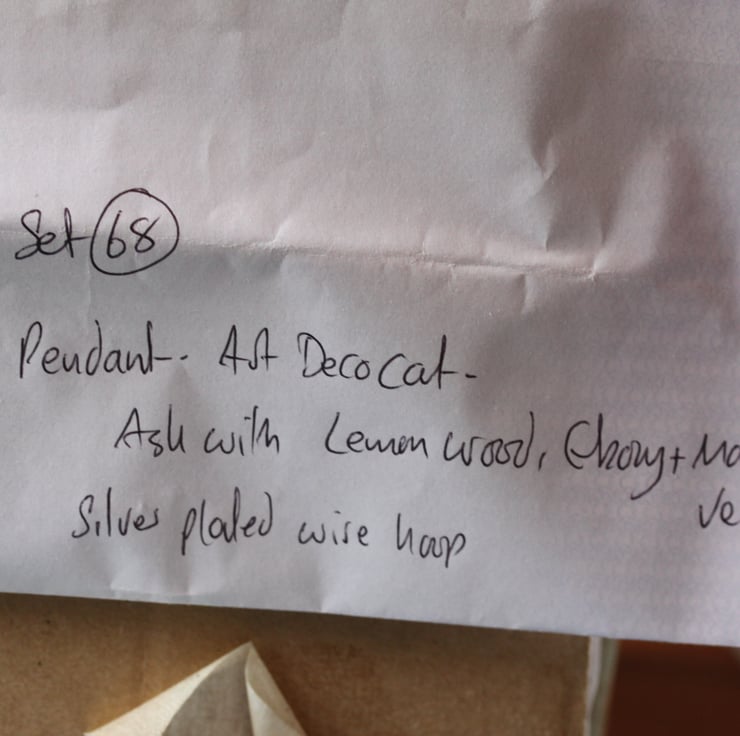 Set 68
Pendant. Art Deco Cat.
Ash with Lemon wood, Ebony + Ma
Ve
Silver plated wire hoop